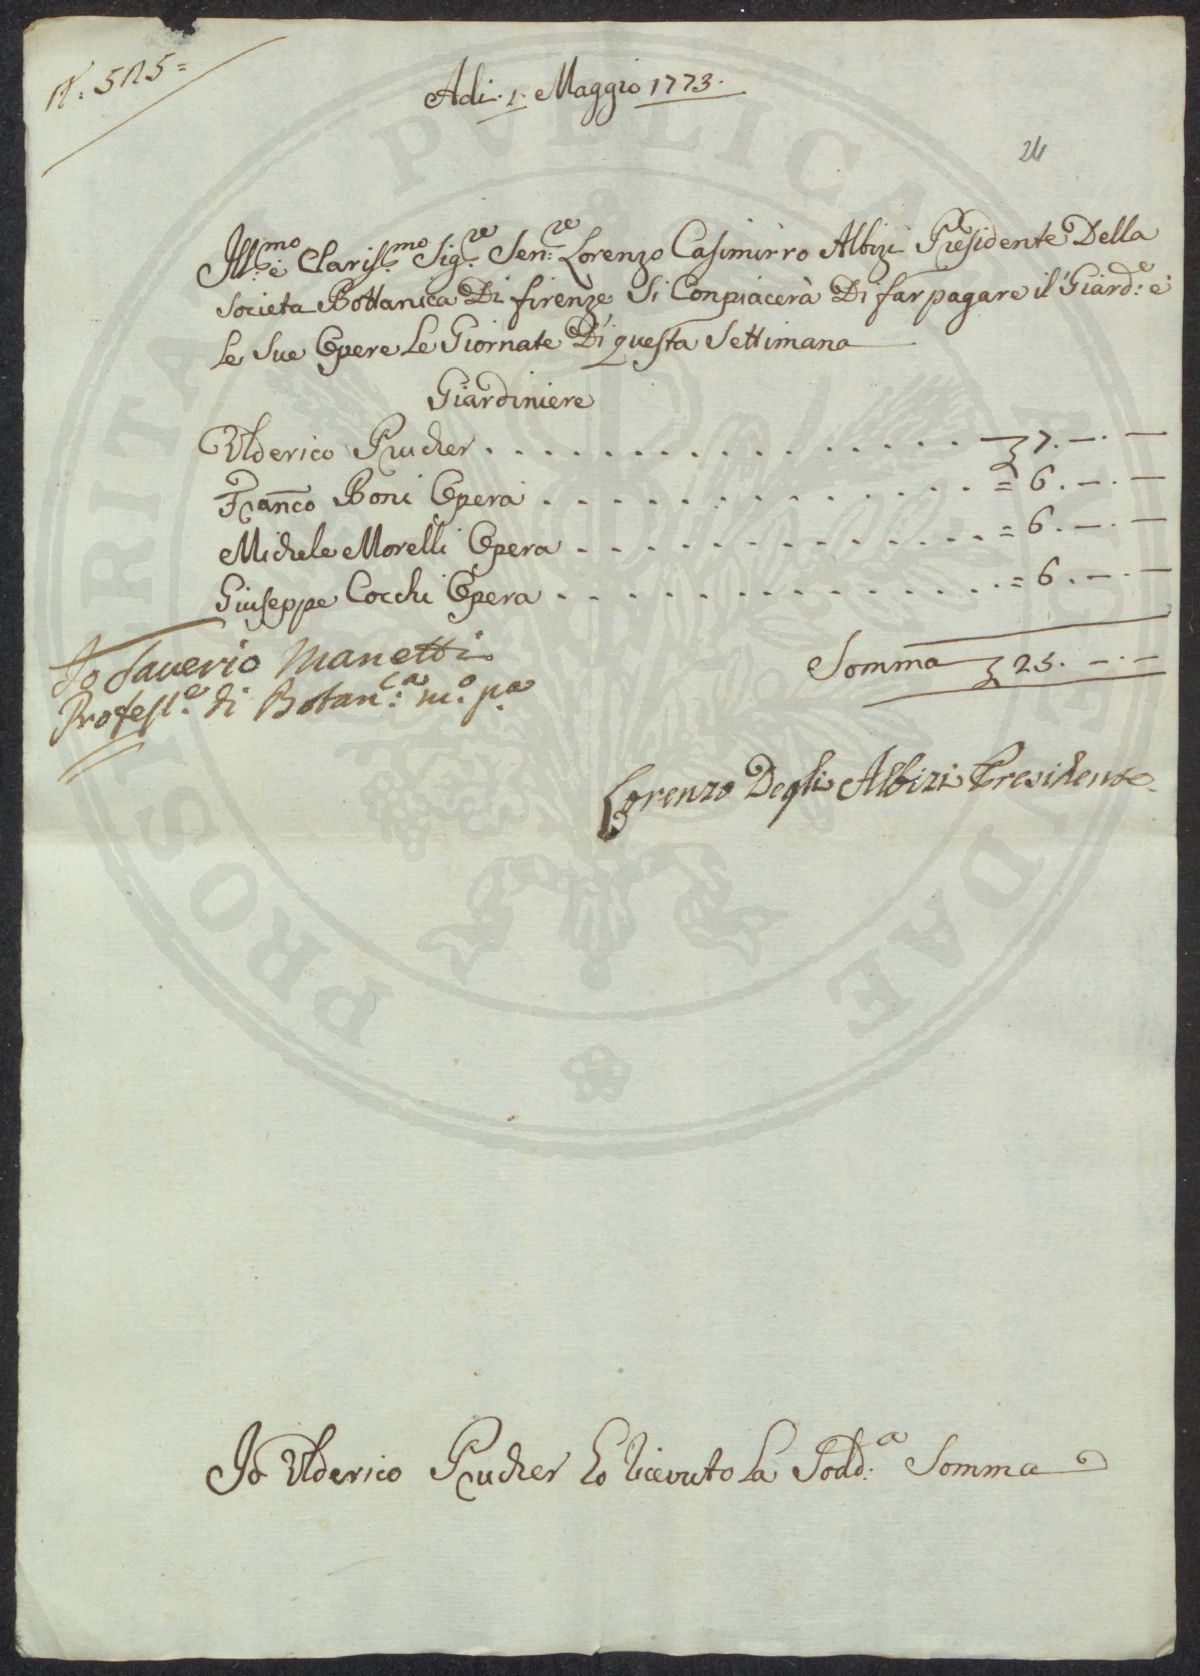 N.° 525=
Adi. 1. Maggio 1773.
24
Ill.mo e Claris.mo Sig.re Sen.re Lorenzo Casimirro Albizi Presidente Della
Societa Bottanica Di firenze Si Conpiacerà Di far pagare il Giard.e e
le Sue Opere Le Giornate Di questa Settimana
Giardiniere
Ulderico Prucher . . . . . . . . . . . . . . 7. —. —
Fran̄co Boni Opera . . . . . . . . . . . . . = 6. —. —
Michele Morelli Opera . . . . . . . . . . . . = 6. —. —
Giuseppe Cocchi Opera . . . . . . . . . . . . = 6. —. —
Somma 25. —. —
Io Saverio Manetti
Profess.e di Botan.ca m.o p.a
Lorenzo Degli Albizi Presidente
Io Ulderico Prucher ho ricevuto La Sodd.a Somma
PROSPERITATI PVBLICAE AVGENDAE